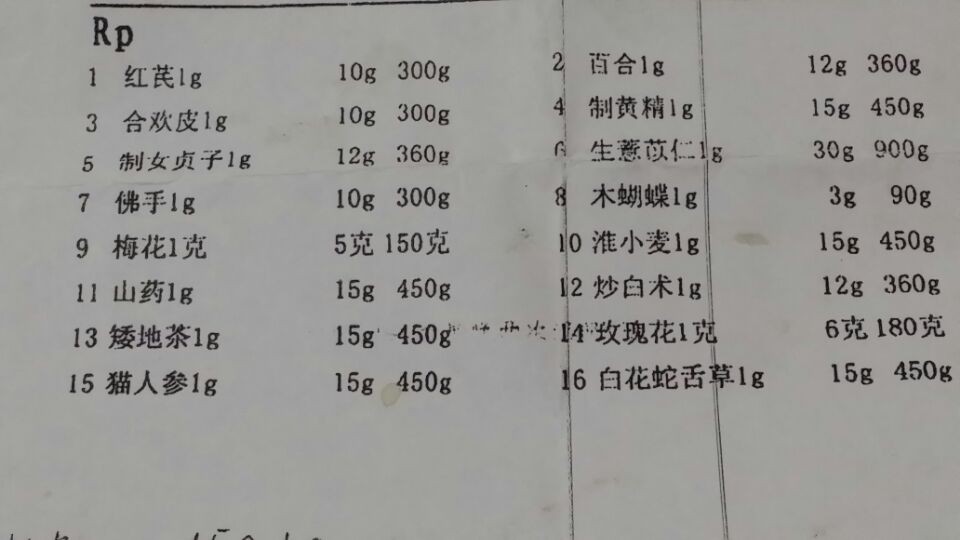 Rp
1 红芪1g 10g 300g 2 百合1g 12g 360g
3 合欢皮1g 10g 300g 4 制黄精1g 15g 450g
5 制女贞子1g 12g 360g 6 生薏苡仁1g 30g 900g
7 佛手1g 10g 300g 8 木蝴蝶1g 3g 90g
9 梅花1克 5克 150克 10 淮小麦1g 15g 450g
11 山药1g 15g 450g 12 炒白术1g 12g 360g
13 矮地茶1g 15g 450g 14 玫瑰花1克 6克 180克
15 猫人参1g 15g 450g 16 白花蛇舌草1g 15g 450g